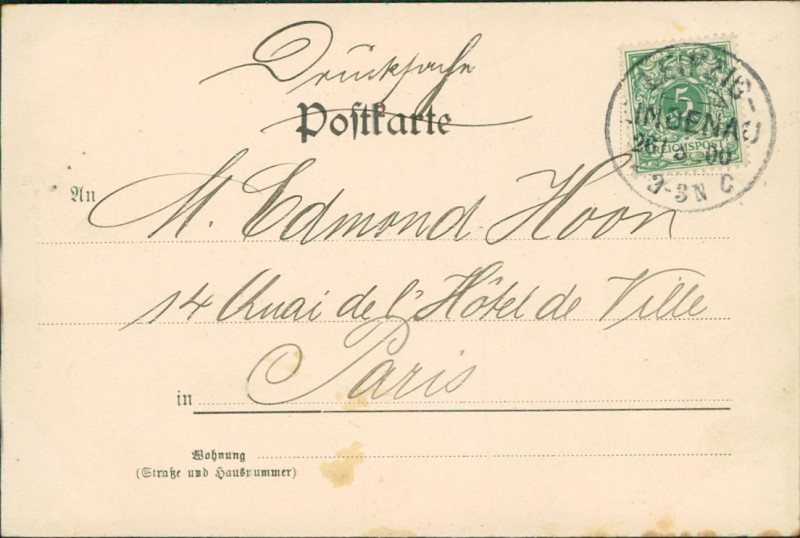 Drucksache
Postkarte
5
REICHSPOST
LEIPZIG-
LINDENAU
26 3 00
2-3N C
An M. Edmond Hoon
14 Quai de l'Hôtel de Ville
in Paris
Wohnung
(Straße und Hausnummer)